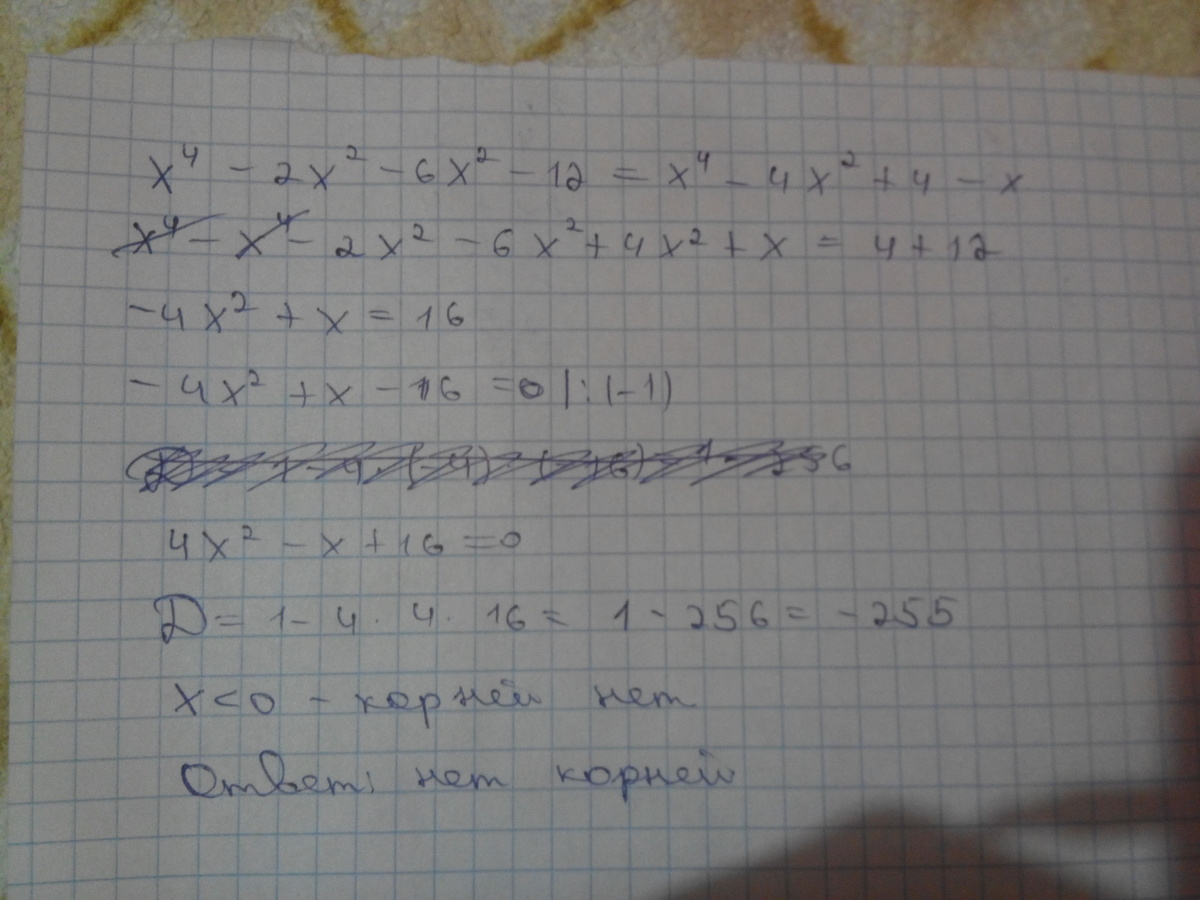 x⁴ - 2x² - 6x² - 12 = x⁴ - 4x² + 4 - x
x⁴ - x⁴ - 2x² - 6x² + 4x² + x = 4 + 12
-4x² + x = 16
-4x² + x - 16 = 0 |:(-1)
4x² - x + 16 = 0
D = 1 - 4 · 4 · 16 = 1 - 256 = -255
x < 0 - корней нет
Ответ: нет корней